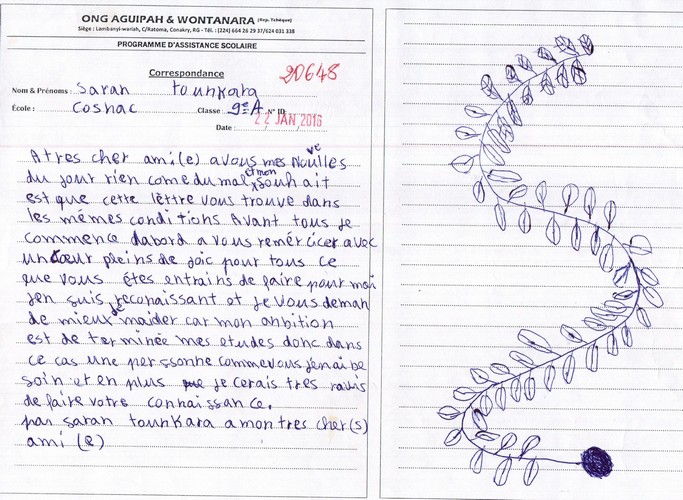 ONG AGUIPAH & WONTANARA (Rep. Tchèque)
Siège : Lambanyi-wariah, C/Ratoma, Conakry, RG - Tél. : (224) 664 26 29 37/624 031 338
PROGRAMME D'ASSISTANCE SCOLAIRE
Correspondance
20648
Nom & Prénoms : Saran tounkara
École : Cosnac Classe : 9e A N° ID
Date : 22 JAN 2016
A tres cher ami(e) avous mes Nouvelles
du jour rien come du mal, et mon souhait
est que cette lèttre vous trouve dans
les mêmes conditions Avant tous je
commence dabord a vous remércicer avec
un cœur pleins de joic pour tous ce
que vous étes entrains de faire pour moi
jen suis reconaissant et je vous deman
de mieux de maider car mon anbition
est de terminée mes etudes donc dans
ce cas une perssonne commevous jénai be
soin et en plus je cerais tres ravis
de faire votre connaissance.
par saran tounkara a mon tres cher(s)
ami (e)